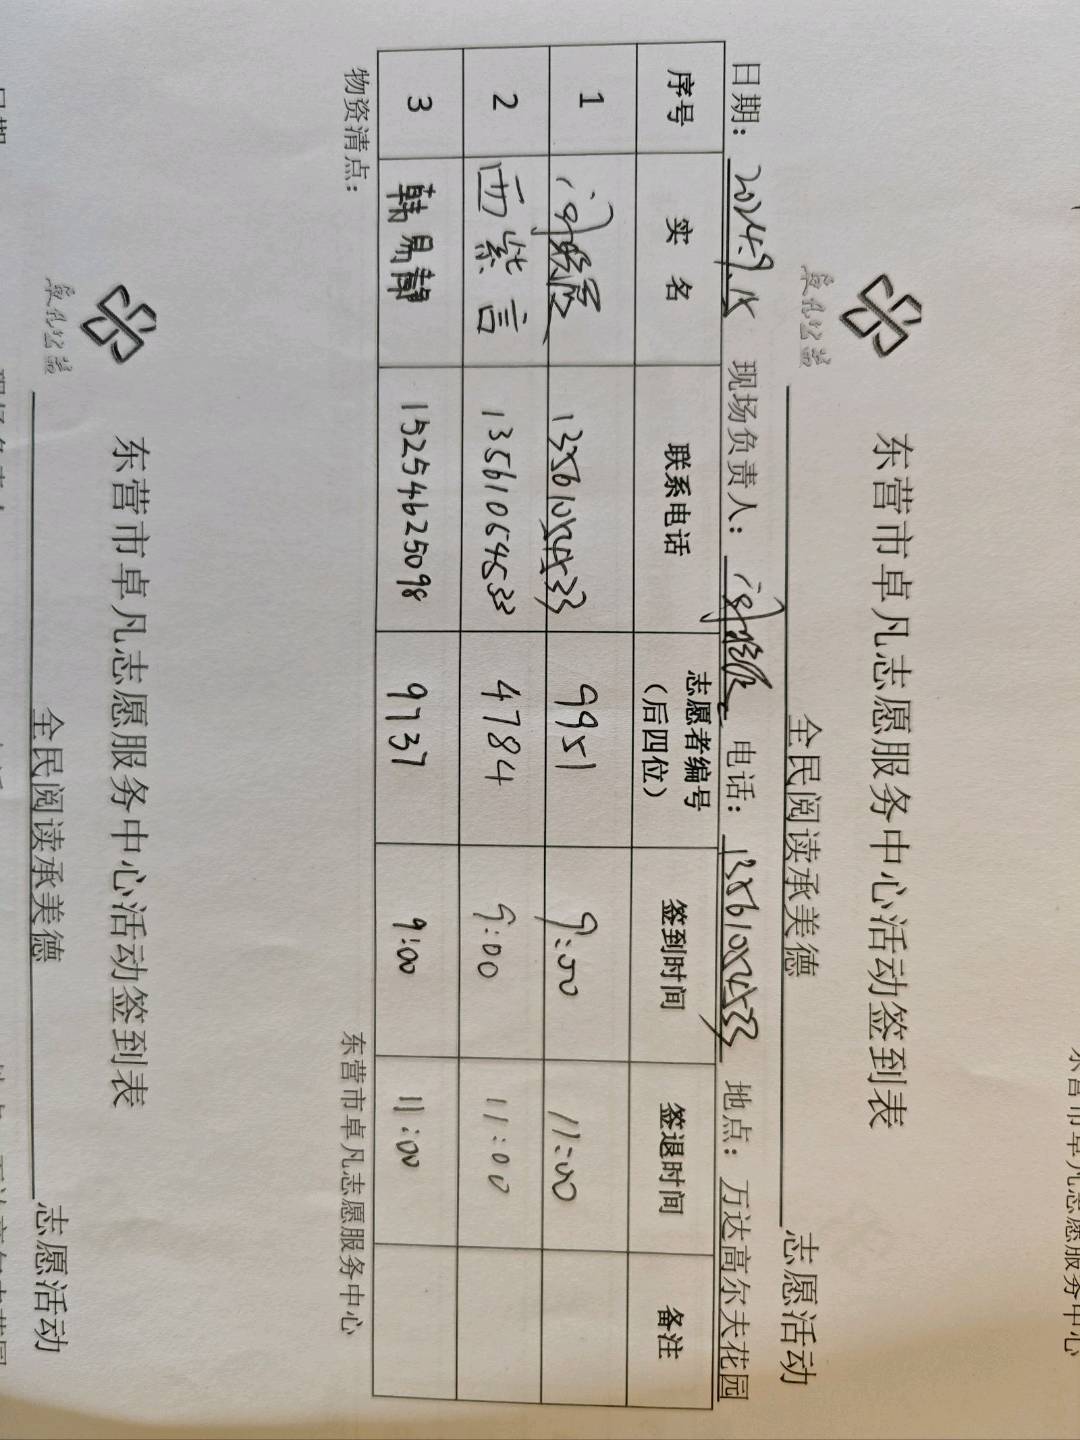 卓凡公益
东营市卓凡志愿服务中心活动签到表
全民阅读承美德 志愿活动
日期：2024.9.15 现场负责人： 电话：13561054533 地点：万达高尔夫花园
序号 实名 联系电话 志愿者编号（后四位） 签到时间 签退时间 备注
1 13561054533 9951 9:00 11:00
2 西紫言 13561054533 4784 9:00 11:00
3 韩易静 15254625098 9737 9:00 11:00
物资清点： 东营市卓凡志愿服务中心
卓凡公益
东营市卓凡志愿服务中心活动签到表
全民阅读承美德 志愿活动